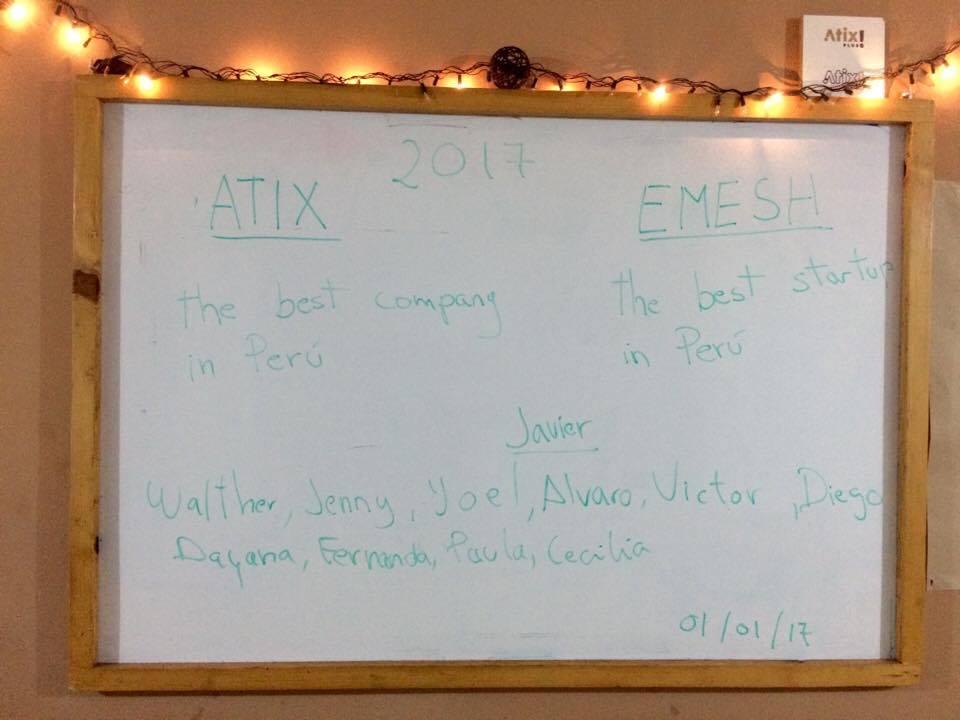 Atix!
PLUS
Atix!
2017
ATIX
the best compang
in Perú
EMESH
the best startup
in Perú
Javier
Walther, Jenny, Yoel, Alvaro, Victor, Diego
Dayana, Fernanda, Paula, Cecilia
01/01/17